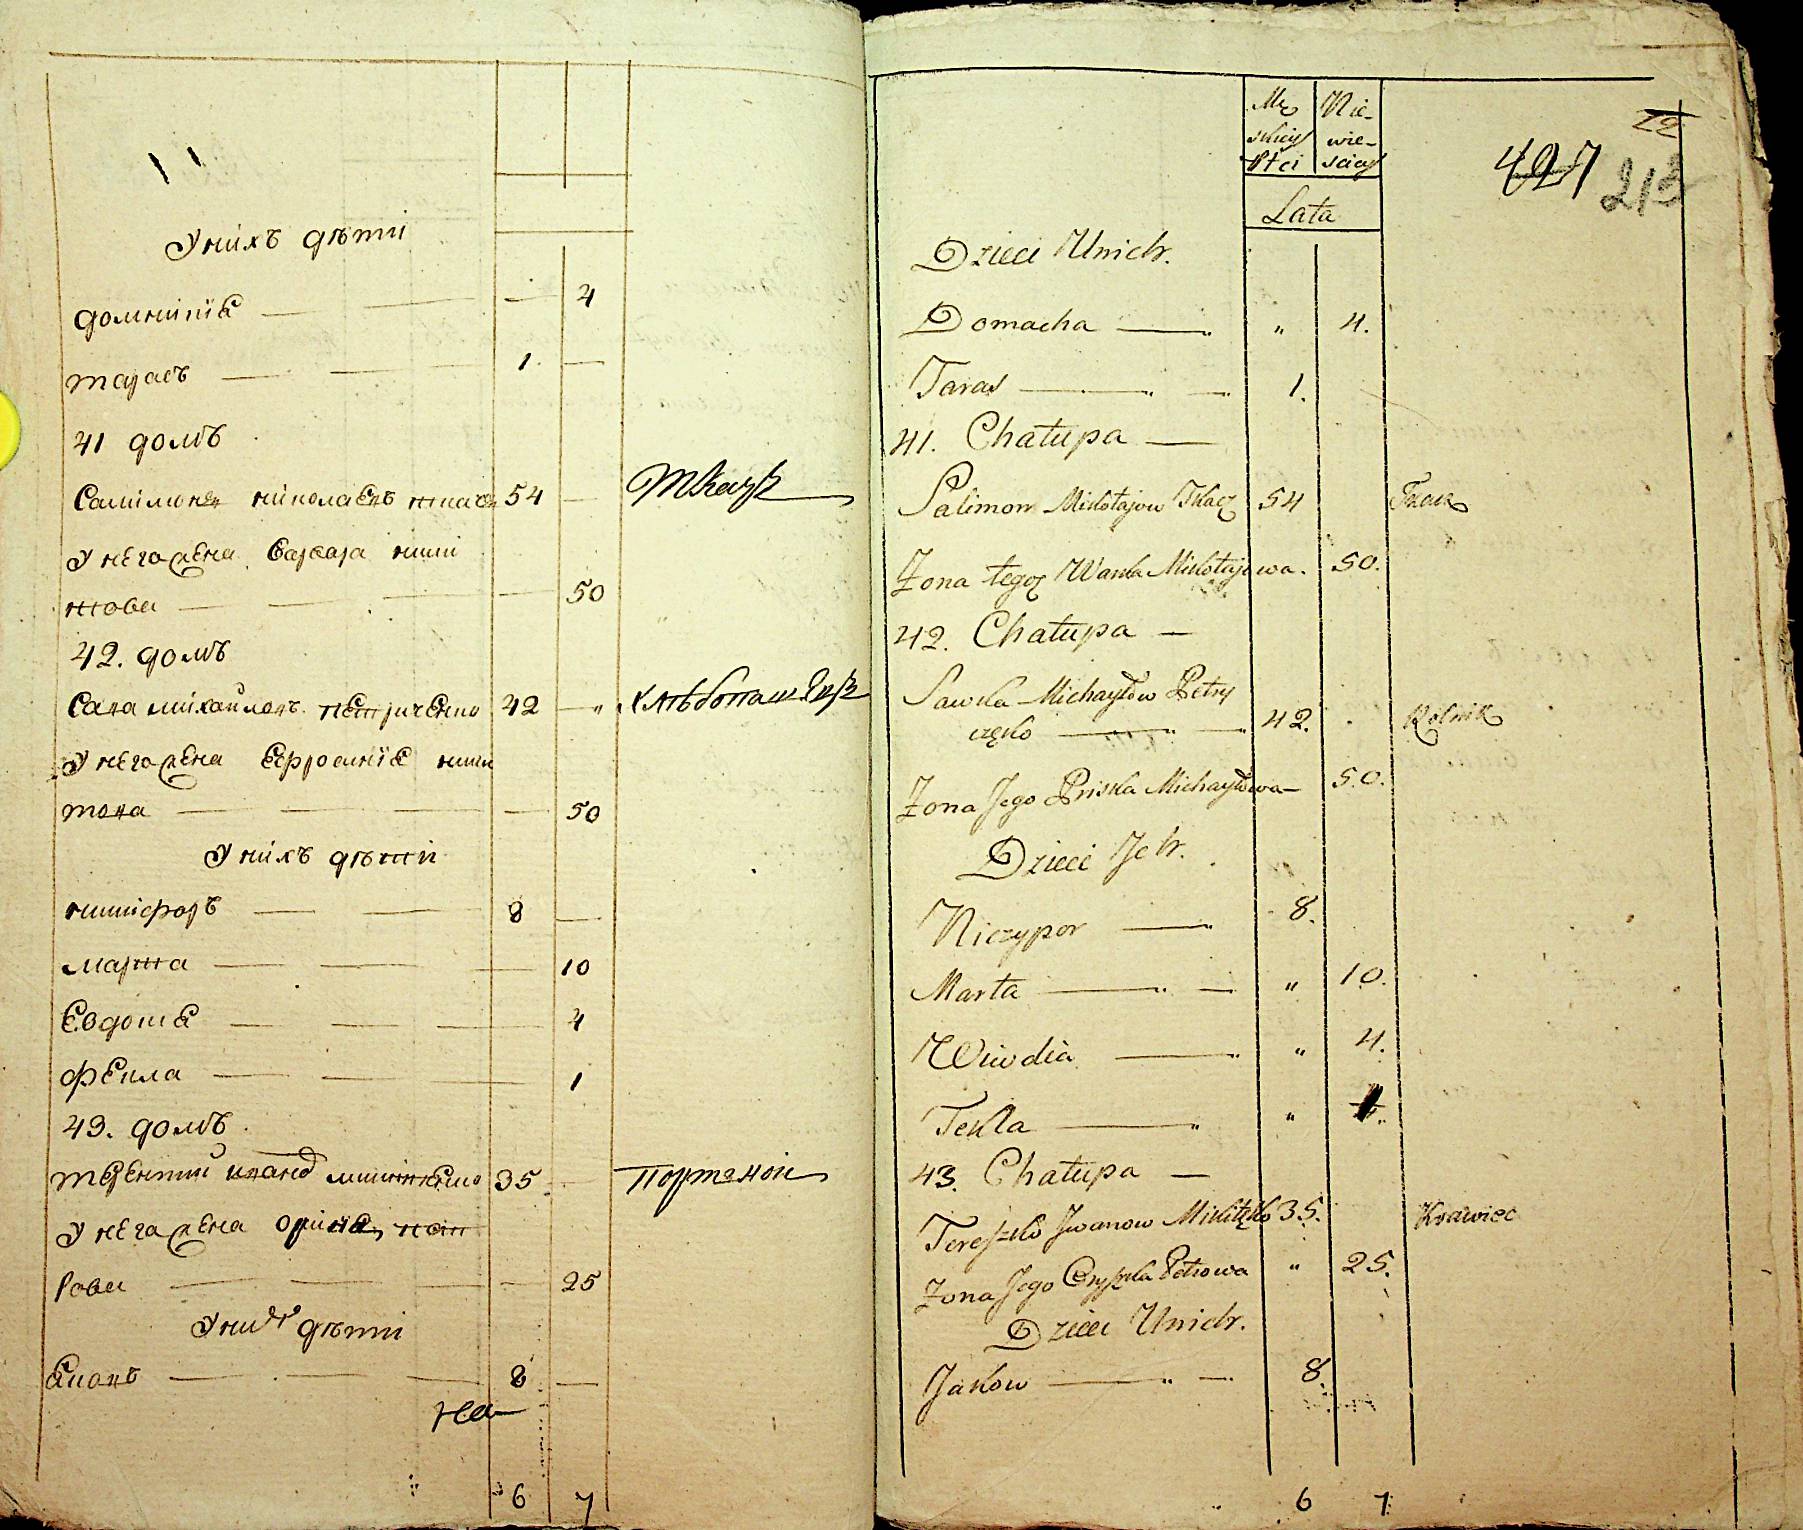 У нихъ дѣти
домникіѣ — — 4
тарасъ — 1 —
41 домъ
Самлмонъ николаевъ ткачъ 54 — Ткачь
У него жена Варвара ники
това — 50
42. домъ
Сава михайловъ петриченко 42 — " хлѣбопашецъ
У него жена Ефросиніѣ ники
това — 50
У нихъ дѣти
никифоръ — 8 —
марта — 10
Евдокиѣ — 4
Фекла — 1
43. домъ
терентий иванов микитенко 35 — Портной
У него жена орина пет
рова — 25
У них дѣти
Ековъ — 8 —
На
6 7
Mę Nie-
skiey wie-
płci sciey
Lata
22
427 213
Dzieci Unich.
Domacha — " 4.
Taras — 1.
41. Chałupa —
Salimon Mikołajow Tkacz 54 Tkacz
Żona tegoż Warka Mikołajowa. 50.
42. Chałupa —
Sawka Michayłow Petry
częko — 42. Rolnik
Żona Jego Priska Michayłowa — 50.
Dzieci Ich.
Niczypor — 8.
Marta — " 10.
Wiwdia — " 4.
Tekla — " 1.
43. Chałupa —
Tereszko Jwanow Mikitęko 35. Krawiec
Żona Jego Oryszka Petrowa " 25.
Dzieci Unich.
Jakow — " — 8.
6 7